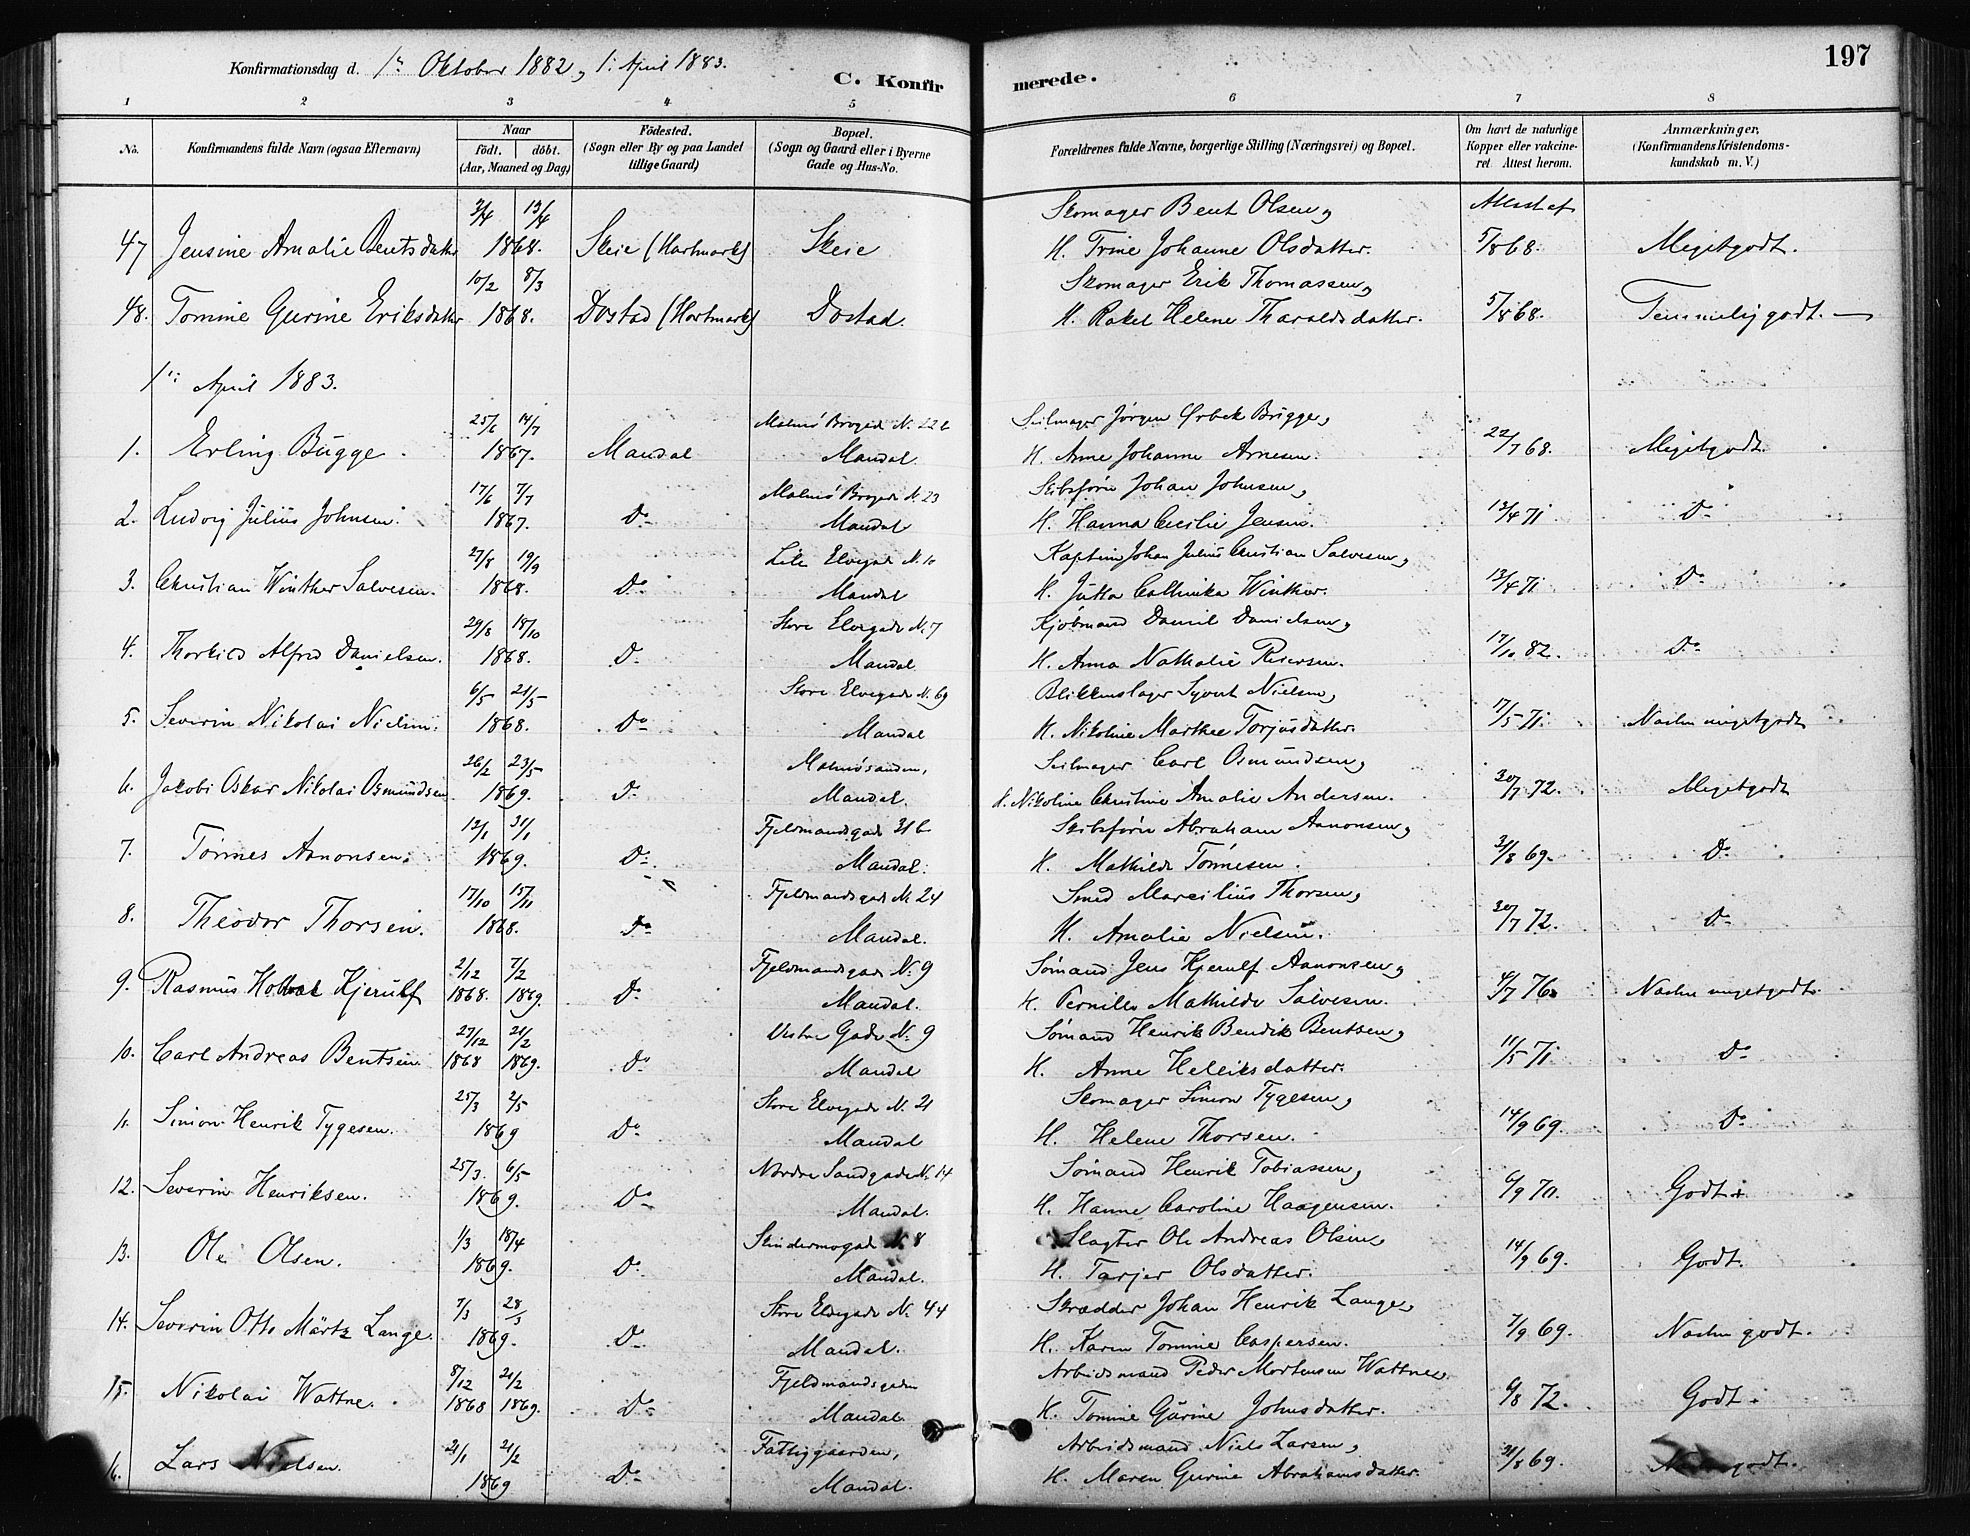 197
Konfirmationsdag d. 1ste Oktober 1882, 1. April 1883.
C. Konfirmerede.
1 2 3 4 5 6 7 8
No. Konfirmandens fulde Navn (ogsaa Efternavn) Naar födt. döbt. (Aar, Maaned og Dag) Födested. (Sogn eller By og paa Landet tillige Gaard) Bopæl. (Sogn og Gaard eller i Byerne Gade og Hus-No. Forældrenes fulde Navne, borgerlige Stilling (Næringsvei) og Bopæl. Om havt de naturlige Kopper eller vakcineret. Attest herom. Anmærkninger, (Konfirmandens Kristendomskundskab m. V.)
3/4 13/4 Skomager Bent Olsen, Attest af
47 Jensine Amalie Bentsdatter 1868. Skeie (Hartmark) Skeie H. Trine Johanne Olsdatter. 5/8 68. Megetgodt.
10/2 8/3 Skomager Erik Thomassen,
48. Tomine Gurine Eriksdatter 1868. Dostad (Hartmark) Dostad. H. Rakel Helene Tharaldsdatter. 5/8 68. Temmelig godt.
1ste April 1883.
25/6 14/7 Malmö Brogade N. 22b Seilmager Jörgen Örbek Bugge,
1. Erling Bugge. 1867. Mandal Mandal. H. Anne Johanne Arnesen. 22/7 68. Megetgodt.
17/6 7/7 Malmö Brogade N. 23 Skibsförer Johan Johnsen,
2. Ludvig Julius Johnsen. 1867. Do Mandal H. Hanna Cecilie Jensen. 13/4 71 Do
27/8 19/9 Lille Elvegade N. 10 Kaptein Johan Julius Christian Salvesen,
3. Christian Winther Salvesen. 1868. Do Mandal H. Jutta Cathinka Winther. 13/4 71 Do
29/8 18/10 Store Elvegade N. 7 Kjöbmand Daniel Danielsen,
4. Thorkild Alfred Danielsen. 1868. Do Mandal H. Anna Nathalie Reiersen. 17/10 82. Do
6/5 21/5 Store Elvegade N. 69 Blikkenslager Syvert Nielsen,
5. Severin Nikolai Nielsen. 1868. Do Mandal H. Nikoline Marthee Torjusdatter. 17/5 71. Næsten megetgodt
26/2 23/5 Malmösanden, Seilmager Carl Osmundsen,
6. Jakobi Oskar Nikolai Osmundsen 1869. Do Mandal. H. Nikoline Christine Amalie Andersen. 30/7 72. Megetgodt
12/1 31/1 Fjeldmandsgade 31b Skibsförer Abraham Aanonsen,
7. Tönnes Aanonsen. 1869. Do Mandal. H. Mathilde Tönnesen. 31/8 69. Do
17/10 15/11 Fjeldmandsgade N. 24 Smed Marcilius Thorsen,
8. Theodor Thorsen. 1868. Do Mandal. H. Amalie Nielsen. 30/7 72. Do
2/12 7/2 Fjeldmandsgade N. 9 Sömand Jens Kjerulf Aanonsen,
9. Rasmus Kjerulf 1868. 1869. Do Mandal. H. Pernille Mathilde Salvesen. 4/7 76. Næsten megetgodt.
27/12 21/2 Vestre Gade N. 9 Sömand Henrik Bendik Bentsen,
10. Carl Andreas Bentsen. 1868 1869. Do Mandal H. Anne Helleiksdatter. 11/5 71. Do
25/3 2/5 Store Elvegade N. 21 Skomager Simon Tygesen,
11. Simon Henrik Tygesen. 1869 Do Mandal H. Helene Thorsen. 14/9 69. Do
25/3. 6/5 Nordre Sandgade N. 14 Sömand Henrik Tobiassen,
12. Severin Henriksen. 1869. Do Mandal. H. Hanne Caroline Haagensen. 6/9 70. Godt.
1/3 18/4 Skindermogade N. 8 Slagter Ole Andreas Olsen,
13. Ole Olsen. 1869. Do Mandal. H. Tarjer Olsdatter. 14/9 69. Godt.
7/3 28/3 Store Elvegade N. 44 Skrædder Johan Henrik Lange,
14. Severin Otto Märtz Lange. 1869. Do Mandal. H. Karen Tomine Caspersen. 7/9 69. Næsten godt.
8/12 21/2 Fjeldmandsgaden Arbeidsmand Peder Mortensen Wattne.
15. Nikolai Wattne. 1868 1869. Do Mandal. H. Tomine Gurine Johnsdatter. 6/8 72. Godt.
21/1 21/2 Fattiggaarden, Arbeidsmand Niels Larsen,
16. Lars Nielsen. 1869 Do Mandal. H. Maren Gurine Abrahamsdatter. 31/8 69. godt.